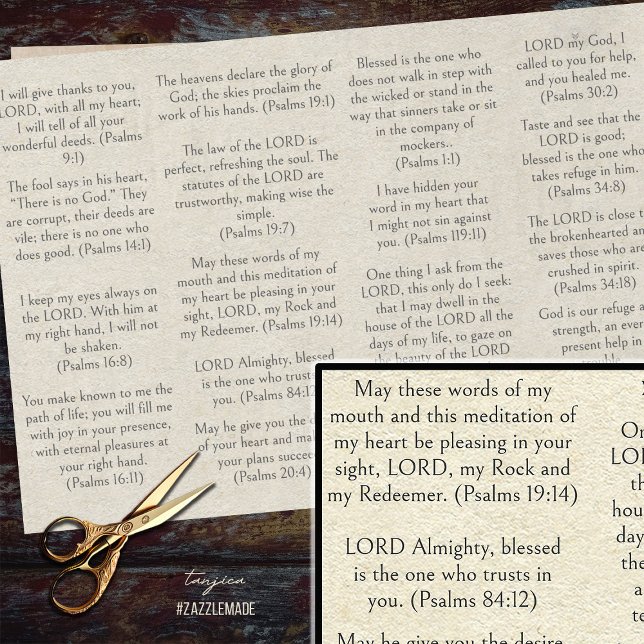 I will give thanks to you,
LORD, with all my heart;
I will tell of all your
wonderful deeds. (Psalms
9:1)
The fool says in his heart,
“There is no God.” They
are corrupt, their deeds are
vile; there is no one who
does good. (Psalms 14:1)
I keep my eyes always on
the LORD. With him at
my right hand, I will not
be shaken.
(Psalms 16:8)
You make known to me the
path of life; you will fill me
with joy in your presence,
with eternal pleasures at
your right hand.
(Psalms 16:11)
The heavens declare the glory of
God; the skies proclaim the
work of his hands. (Psalms 19:1)
The law of the LORD is
perfect, refreshing the soul. The
statutes of the LORD are
trustworthy, making wise the
simple.
(Psalms 19:7)
May these words of my
mouth and this meditation of
my heart be pleasing in your
sight, LORD, my Rock and
my Redeemer. (Psalms 19:14)
LORD Almighty, blessed
is the one who trusts in
you. (Psalms 84:12)
May he give you the
of your heart and
your plans
(Psalms 20:4)
Blessed is the one who
does not walk in step with
the wicked or stand in the
way that sinners take or sit
in the company of
mockers..
(Psalms 1:1)
I have hidden your
word in my heart that
I might not sin against
you. (Psalms 119:11)
One thing I ask from the
LORD, this only do I seek:
that I may dwell in the
house of the LORD all the
days of my life, to gaze on
the beauty of the LORD
LORD my God, I
called to you for help,
and you healed me.
(Psalms 30:2)
Taste and see that the
LORD is good;
blessed is the one who
takes refuge in him.
(Psalms 34:8)
The LORD is close to
the brokenhearted and
saves those who are
crushed in spirit.
(Psalms 34:18)
God is our refuge a
strength, an ever
present help in
trouble
May these words of my
mouth and this meditation of
my heart be pleasing in your
sight, LORD, my Rock and
my Redeemer. (Psalms 19:14)
LORD Almighty, blessed
is the one who trusts in
you. (Psalms 84:12)
May he give you the desire
On
LOR
th
hou
day
the
a
te
tanjica
#ZAZZLEMADE